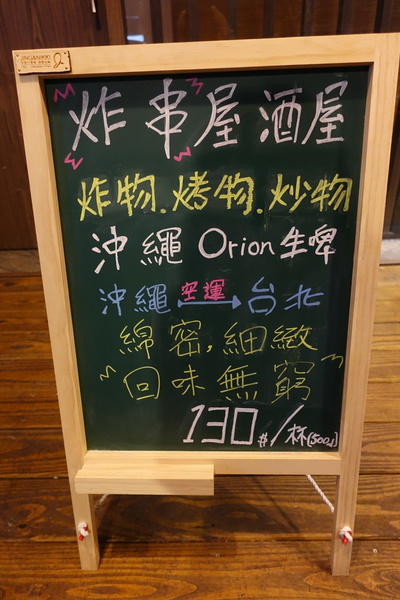 炸串屋酒屋
炸物.烤物.炒物
沖繩 Orion 生啤
沖繩 空運 台北
綿密,細緻
回味無窮
130 /杯(500